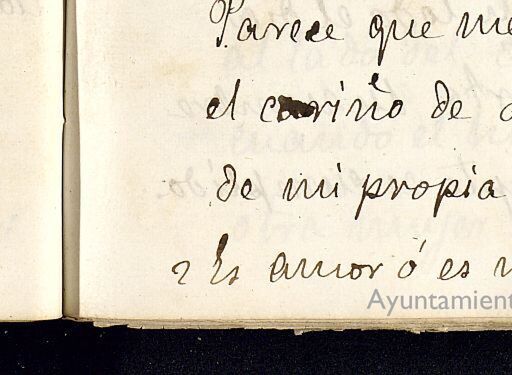 Parece que me
el cariño de
de mi propia
¿Es amor ó es
Ayuntamient